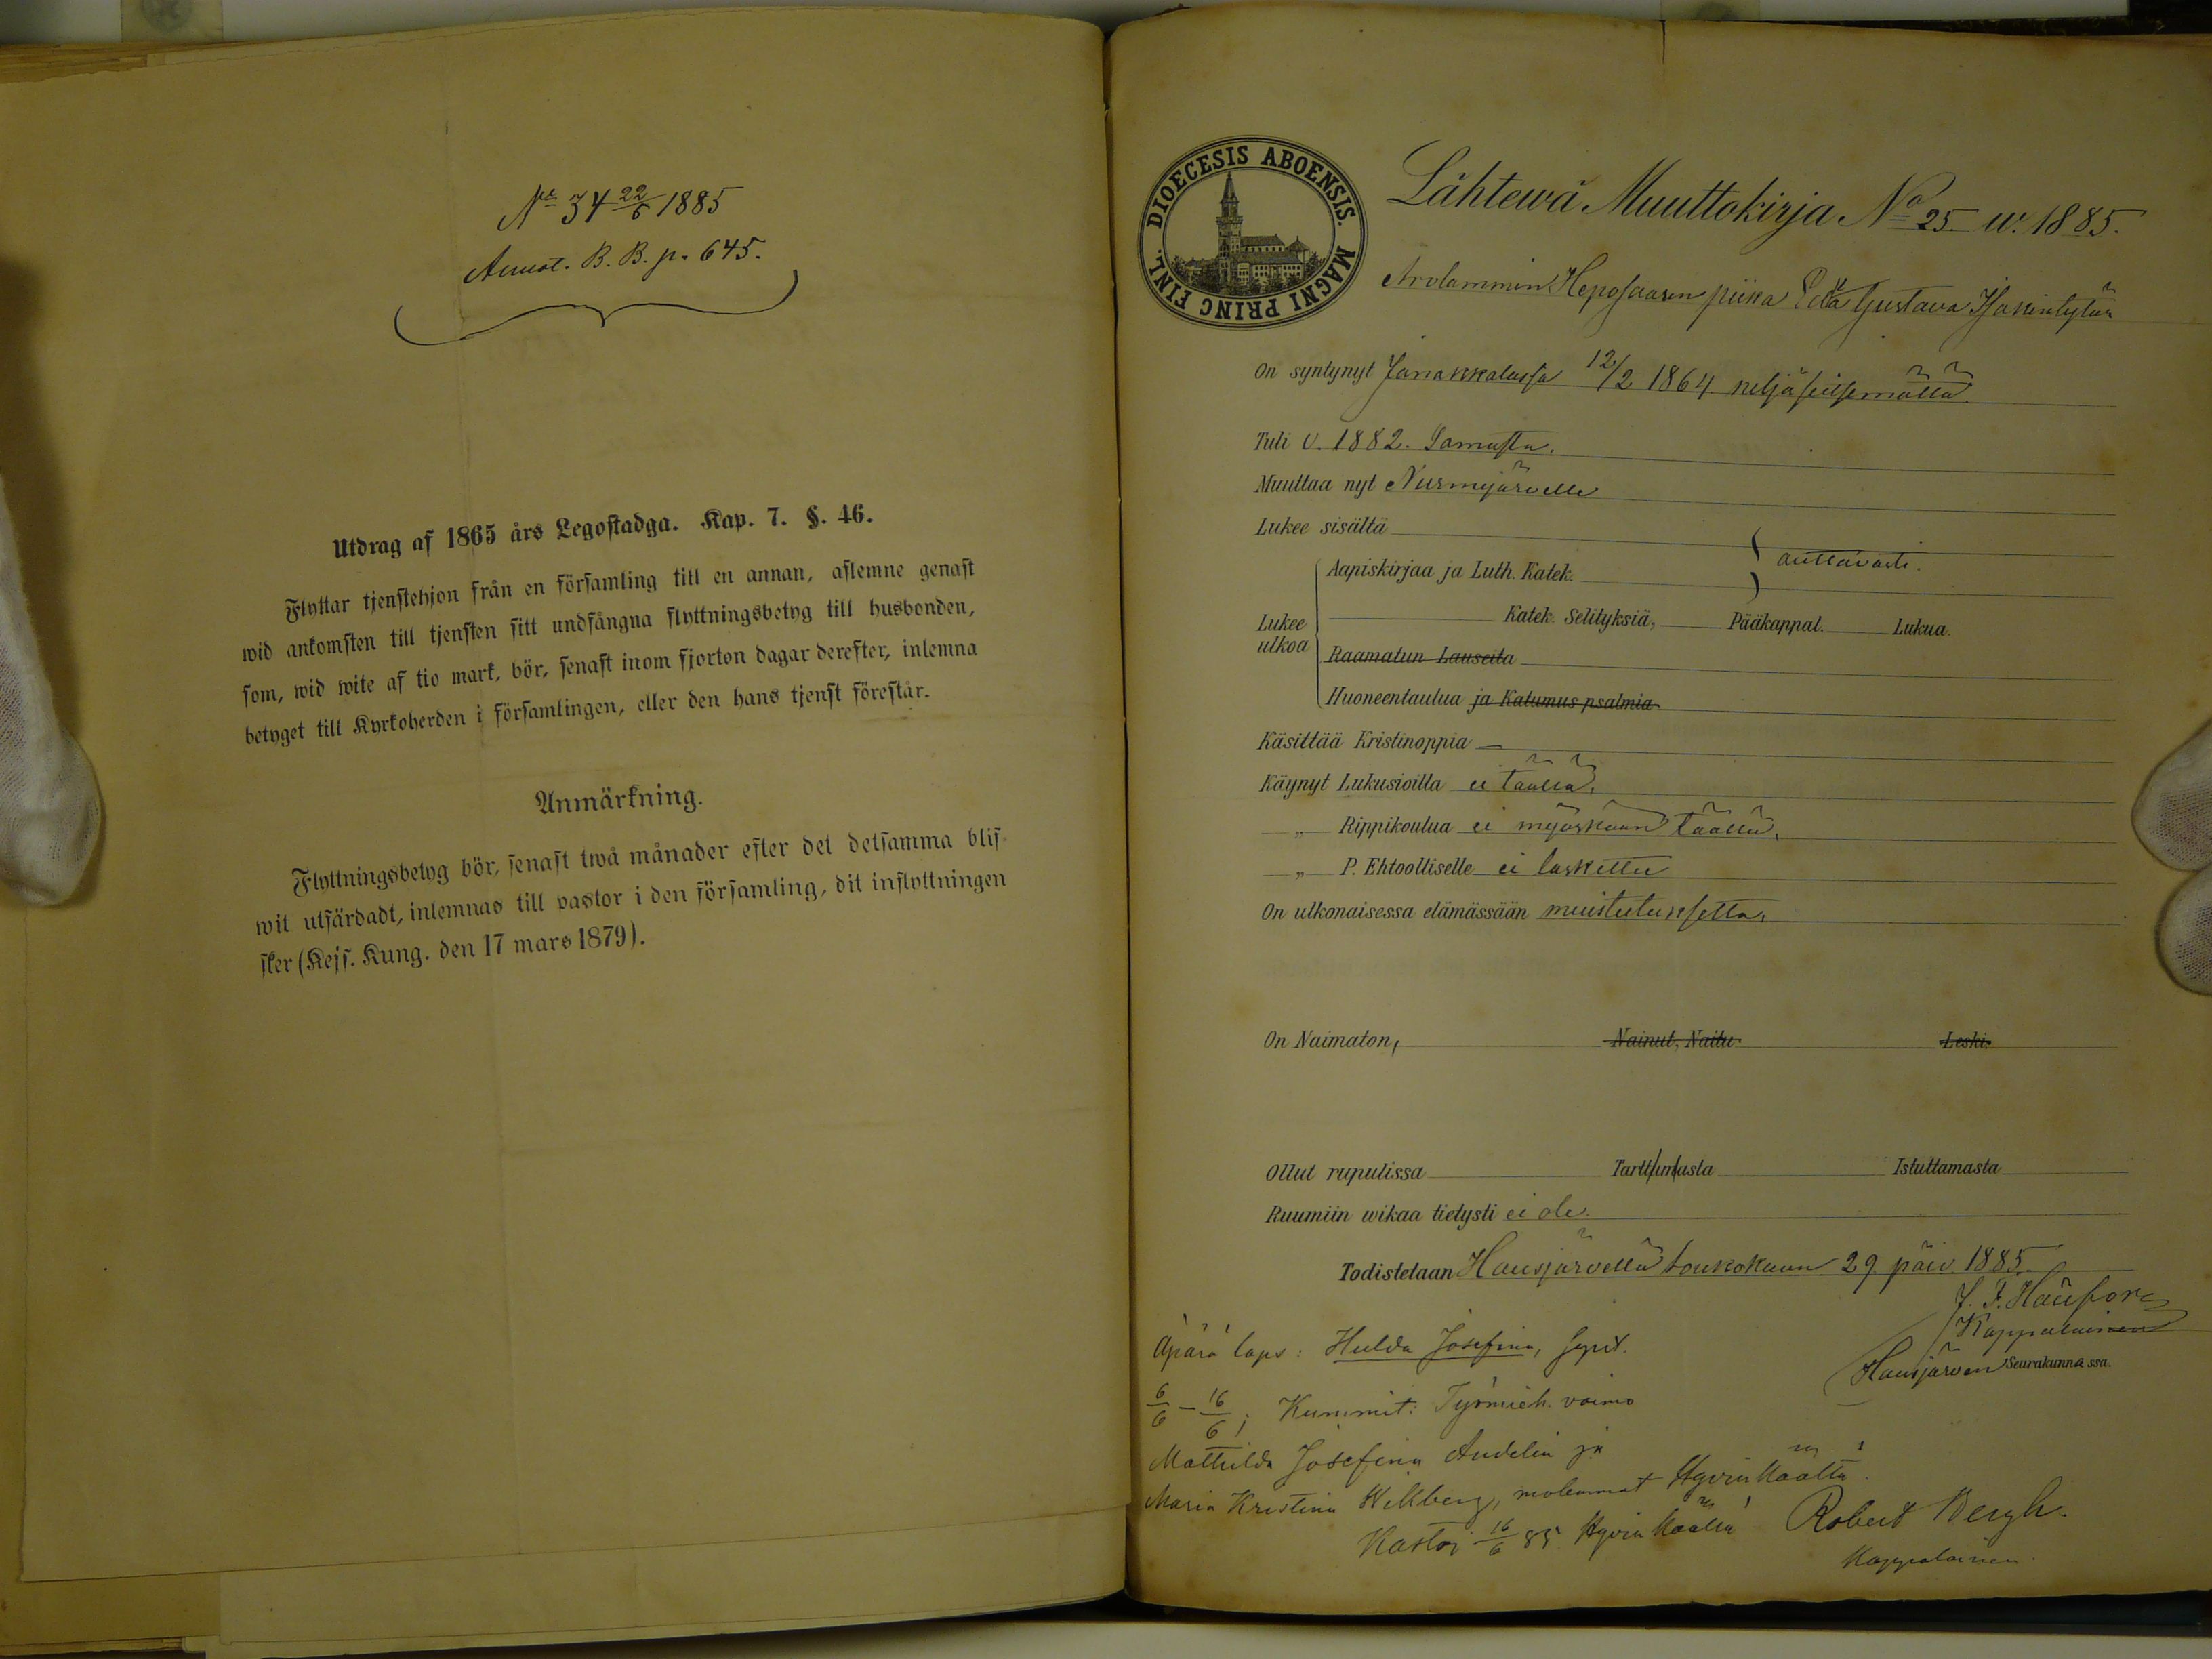 No 34 22/6 1885
Annot. B. B. p. 645.
Utdrag af 1865 års Legostadga. Kap. 7. §. 46.
Flyttar tjenstehjon från en församling till en annan, aflemne genast
wid ankomsten till tjensten sitt undfångna flyttningsbetyg till husbonden,
som, wid wite af tio mark, bör, senast inom fjorton dagar derefter, inlemna
betyget till Kyrkoherden i församlingen, eller den hans tjenst förestår.
Anmärkning.
Flyttningsbetyg bör, senast twå månader efter det detsamma blif-
wit utfärdadt, inlemnas till pastor i den församling, dit inflyttningen
sker (Kejs. Kung. den 17 mars 1879).
DIOECESIS ABOENSIS. MAGNI PRINC FINL.
Lähtewä Muuttokirja No 25. w. 1885.
Arolammin Heposaaren piika Gustava Isakintytär
On syntynyt Janakkalassa 12/2 1864 neljäseitsemättä.
Tuli v. 1882. Samasta.
Muuttaa nyt Nurmijärvelle
Lukee sisältä
Aapiskirjaa ja Luth. Katek. auttavasti.
Lukee ulkoa
Katek. Selityksiä, Pääkappal. Lukua.
Raamatun Lauseita
Huoneentaulua ja Katumus psalmia
Käsittää Kristinoppia —
Käynyt Lukusioilla ei täällä.
„ Rippikoulua ei myöskään täällä,
„ P. Ehtoolliselle ei laskettu
On ulkonaisessa elämässään muistutuksetta,
On Naimaton, Nainut, Naitu Leski.
Ollut rupulissa Tarttumasta Istuttamasta
Ruumiin wikaa tietysti ei ole.
Todistetaan Hausjärvellä toukokuun 29 päiv. 1885.
J. F.
Kappalainen
Hausjärven Seurakunnassa.
Äpärä laps: Hulda Josefina, synt.
6/6 – 16/6; Kummit: Työmieh. vaimo
Mathilda Josefina Andelin ja
Maria Kristina Wikberg, molemmat Hyvinkäältä.
Kastoi 16/6 85 Hyvinkäällä Robert Bergh.
Kappalainen.